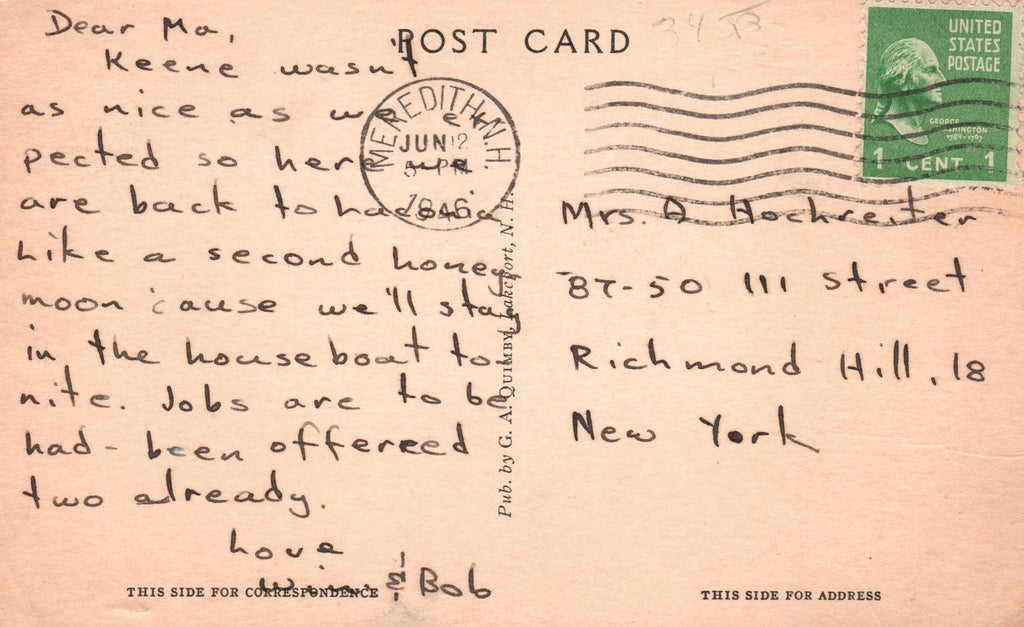 Dear Ma,
Keene wasn't
as nice as we ex
pected so here we
are back to Laconia
Like a second honey
moon 'cause we'll stay
in the houseboat to
nite. Jobs are to be
had - been offereed
two already.
Love
Win. & Bob
THIS SIDE FOR CORRESPONDENCE
POST CARD
34 JB
MEREDITH N.H.
JUN 12
5 - PM
1946
Pub. by G. A. QUIMBY, Lakeport, N. H.
UNITED
STATES
POSTAGE
GEORGE
WASHINGTON
1789-1797
1 CENT 1
Mrs. A Hochreiter
87-50 111 Street
Richmond Hill, 18
New York
THIS SIDE FOR ADDRESS